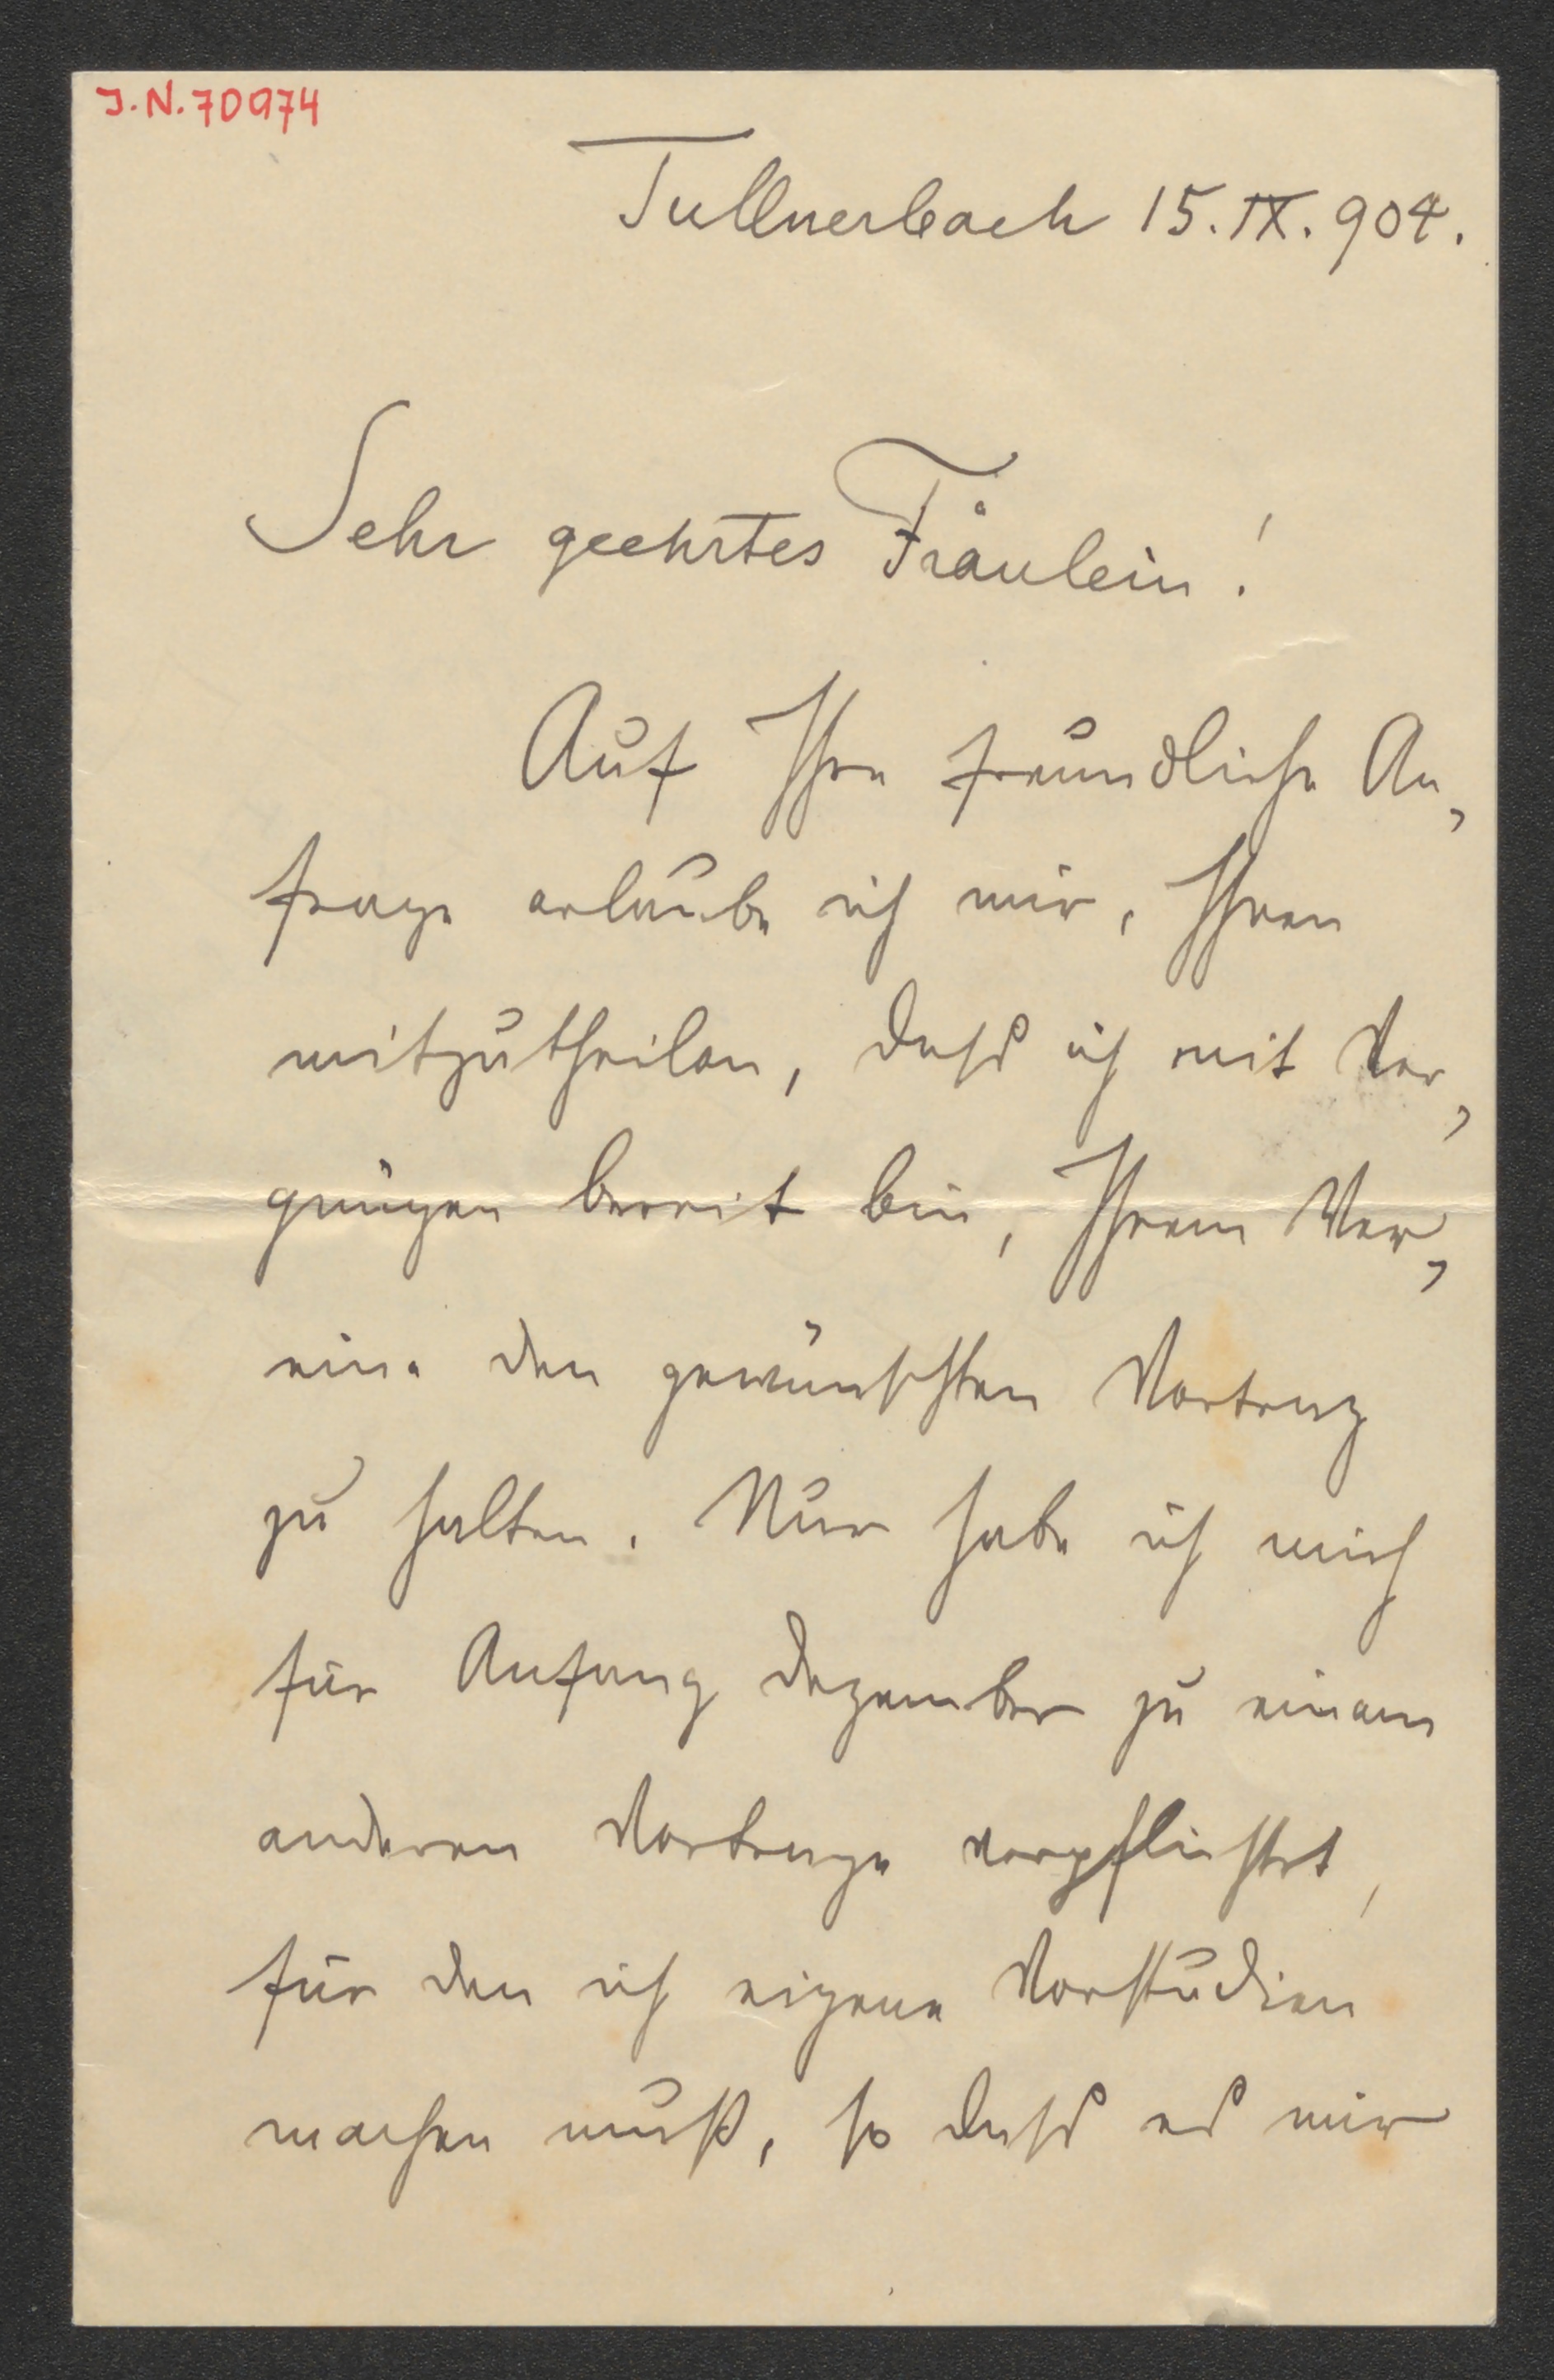 J.N. 70974
Tullnerbach 15. IX. 904.
Sehr geehrtes Fräulein!
Auf Ihre freundliche An-
frage erlaube ich mir, Ihnen
mitzutheilen, dass ich mit Ver-
gnügen bereit bin, Ihrem Ver-
eine den gewünschten Vortrag
zu halten. Nur habe ich mich
für Anfang Dezember zu einem
anderen Vortrage verpflichtet,
für den ich eigene Vorstudien
machen muß, so dass es mir